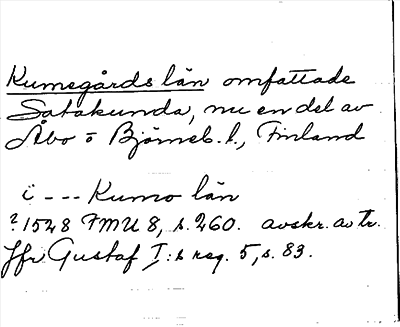 Kumogårds län omfattade
Satakunda, nu en del av
Åbo o Björneb. l., Finland
i --- Kumo län
? 1528 FMU 8, s. 260. avskr. av tr.
Jfr Gustaf I:s reg. 5, s. 83.